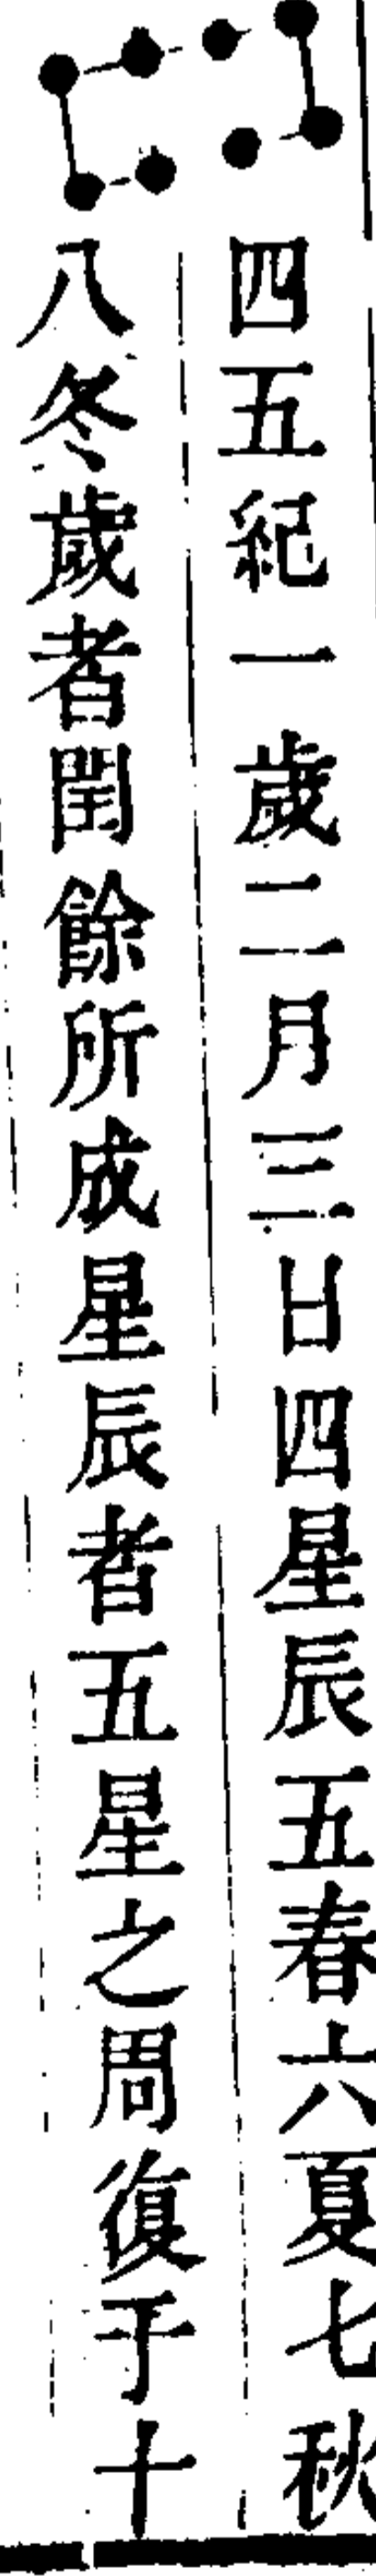 四五紀一歲二月三日四星辰五春六夏七秋
八冬歲者閏餘所成星辰者五星之周復于十